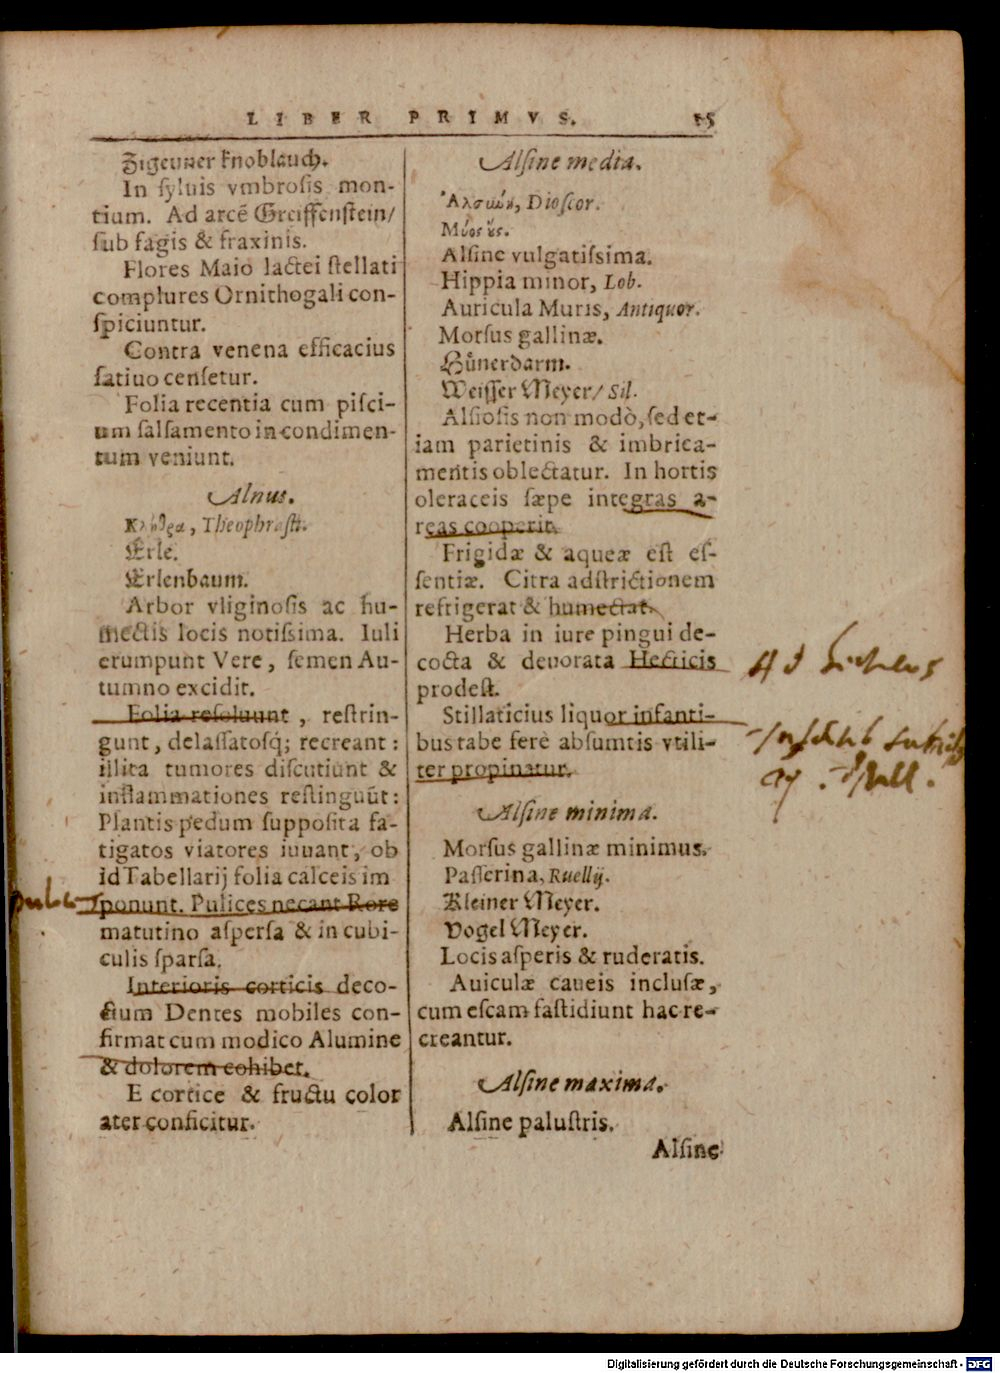 LIBER PRIMVS. 15
Zigeuner knoblauch.
In syluis vmbrosis mon-
tium. Ad arcē Greiffenstein/
sub fagis & fraxinis.
Flores Maio lactei stellati
complures Ornithogali con-
spiciuntur.
Contra venena efficacius
satiuo censetur.
Folia recentia cum pisci-
um salsamento in condimen-
tum veniunt.
Alnus.
Κλήθρα, Theophrasti.
Erle.
Erlenbaum.
Arbor vliginosis ac hu-
mectis locis notissima. Iuli
erumpunt Vere, semen Au-
tumno excidit.
Folia resoluunt, restrin-
gunt, delassatosq; recreant:
illita tumores discutiunt &
inflammationes restinguūt:
Plantis pedum supposita fa-
tigatos viatores iuuant, ob
id Tabellarij folia calceis im
ponunt. Pulices necant Rore
matutino aspersa & in cubi-
culis sparsa.
Interioris corticis deco-
ctum Dentes mobiles con-
firmat cum modico Alumine
& dolorem cohibet.
E cortice & fructu color
ater conficitur.
Alsine media.
Ἀλσίνη, Dioscor.
Μυὸς ὦς.
Alsine vulgatissima.
Hippia minor, Lob.
Auricula Muris, Antiquor.
Morsus gallinæ.
Hůnerdarm.
Weisser Meyer/ Sil.
Alsiosis non modò, sed et-
iam parietinis & imbrica-
mentis oblectatur. In hortis
oleraceis sæpe integras a-
reas cooperit.
Frigidæ & aqueæ est es-
sentiæ. Citra adstrictionem
refrigerat & humectat.
Herba in iure pingui de-
cocta & deuorata Hecticis
prodest.
Stillaticius liquor infanti-
bus tabe ferè absumtis vtili-
ter propinatur.
Alsine minima.
Morsus gallinæ minimus.
Passerina, Ruellij.
Kleiner Meyer.
Vogel Meyer.
Locis asperis & ruderatis.
Auiculæ caueis inclusæ,
cum escam fastidiunt hac re-
creantur.
Alsine maxima.
Alsine palustris.
Alsine
Digitalisierung gefördert durch die Deutsche Forschungsgemeinschaft - DFG